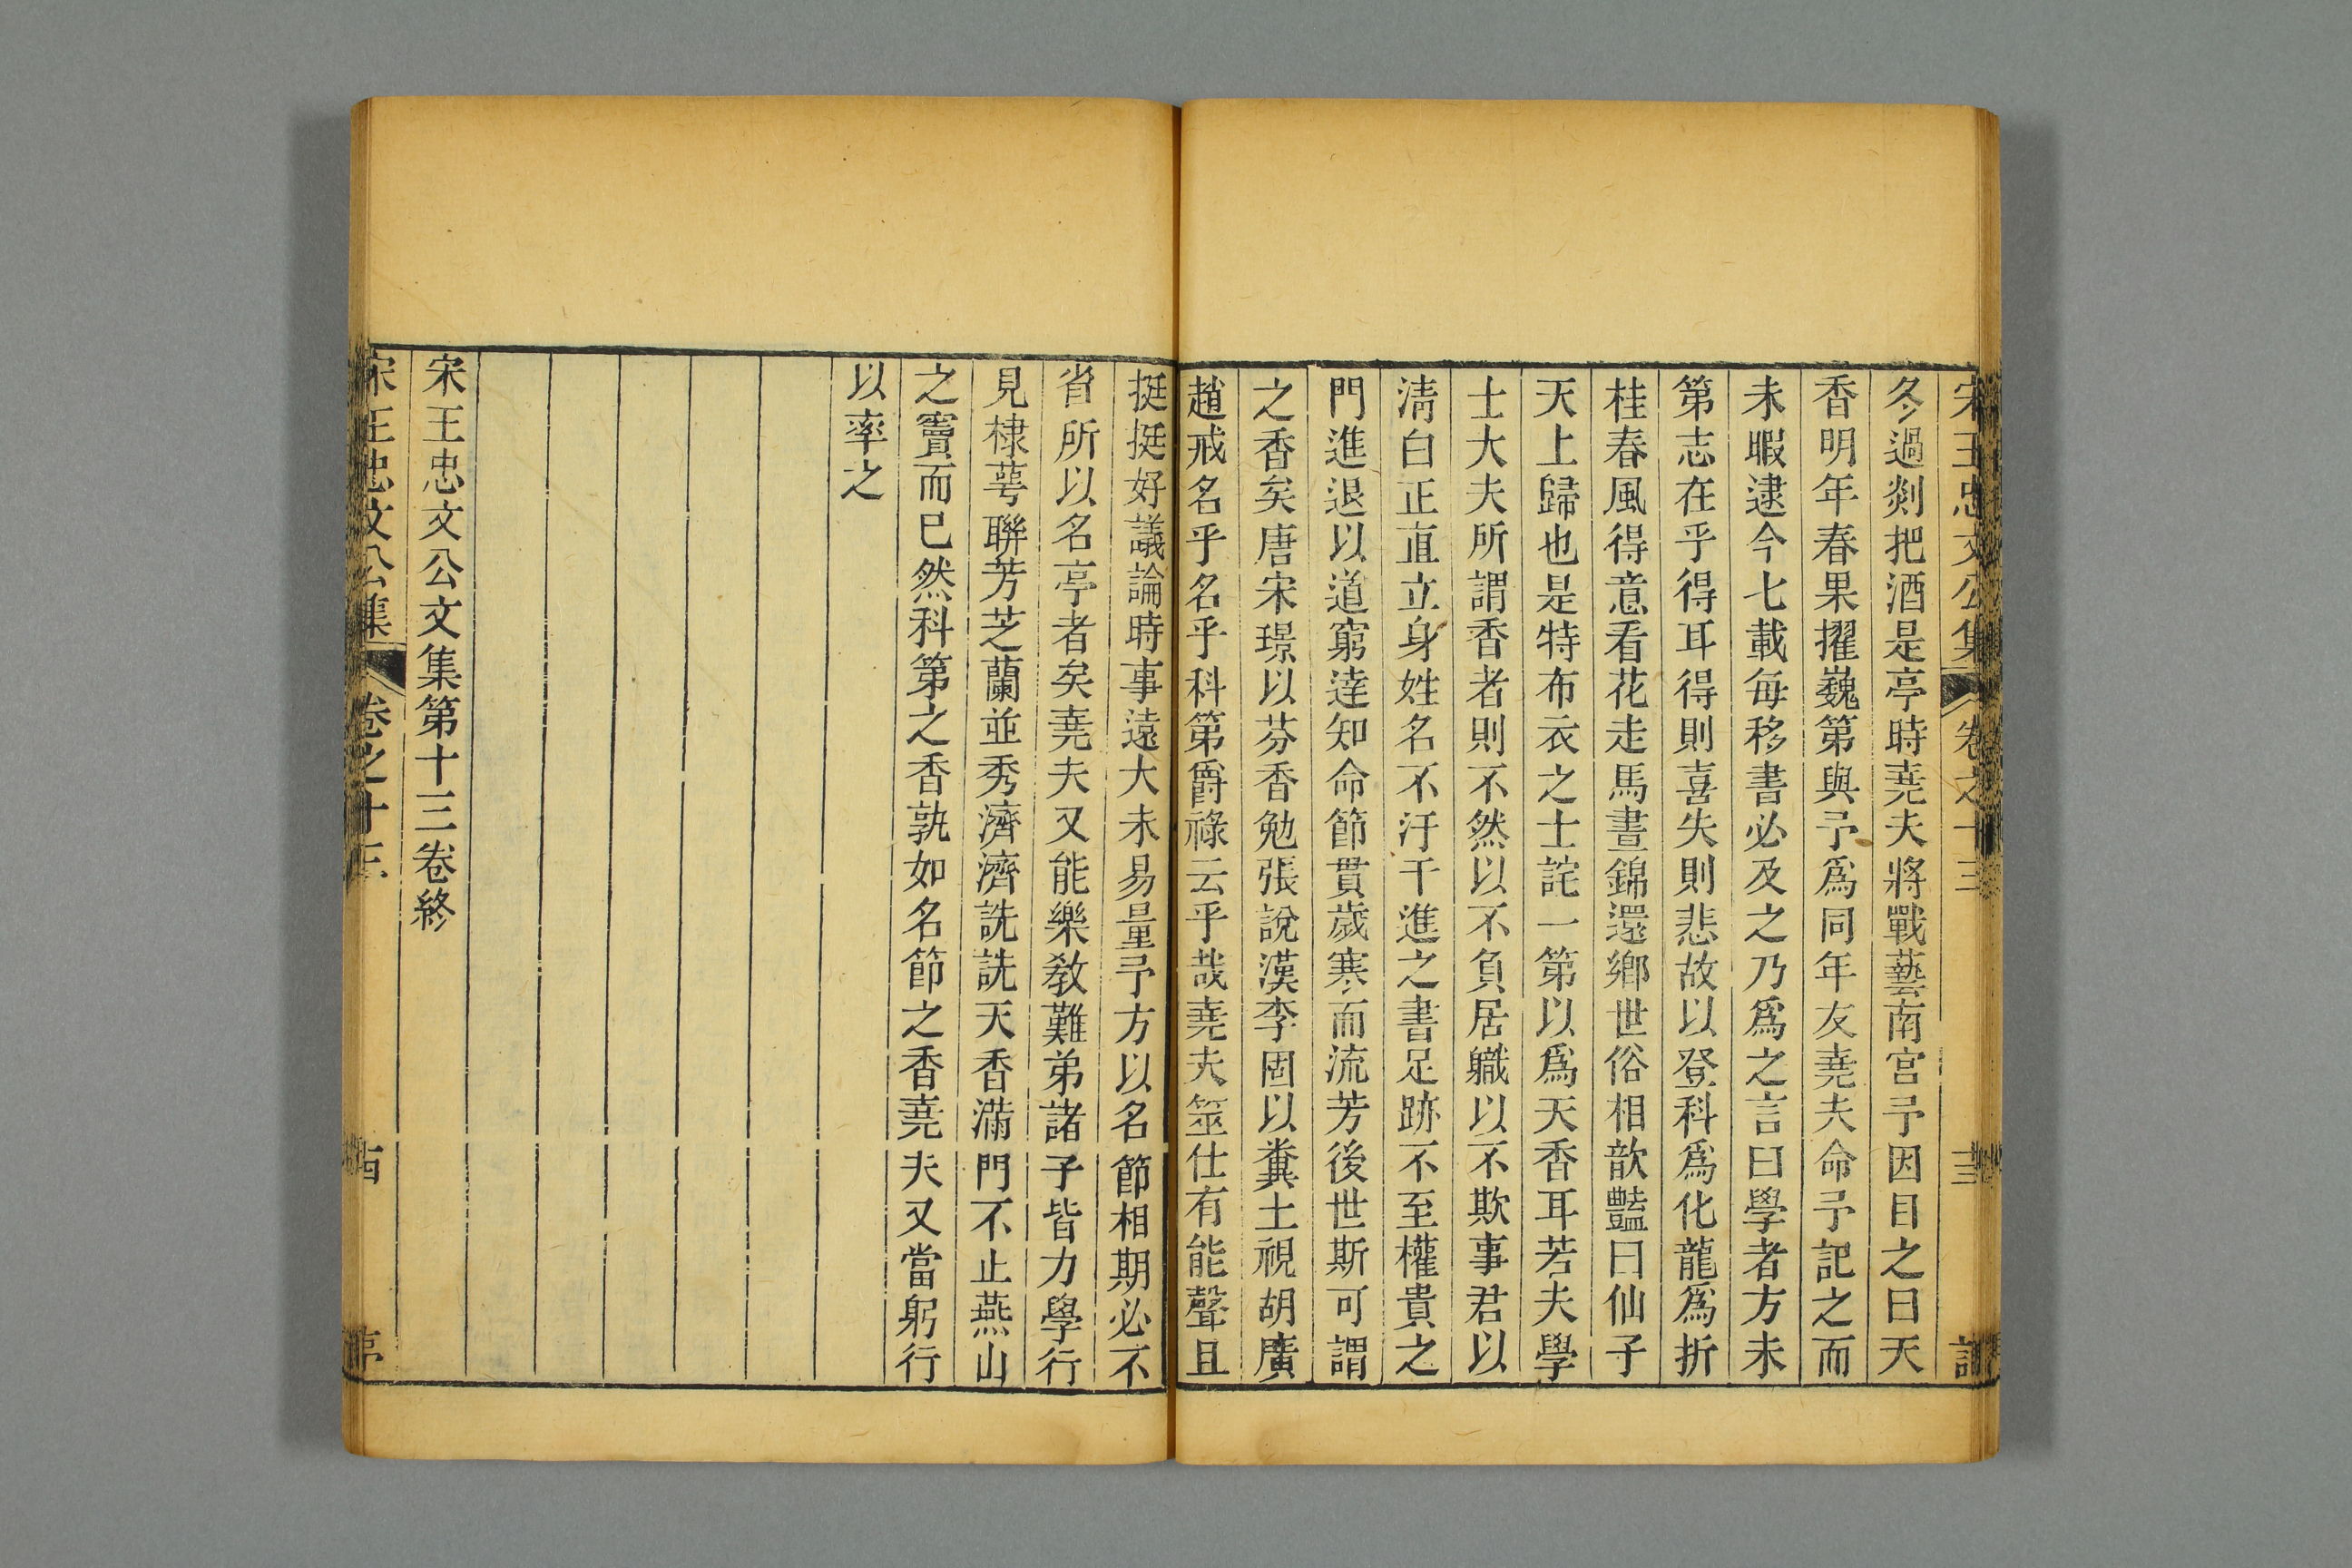 宋王忠文公集 卷之十三 記
冬過剡把酒是亭時堯夫將戰藝南宮予因目之曰天
香明年春果擢巍第與予爲同年友堯夫命予記之而
未暇逮今七載每移書必及之乃爲之言曰學者方未
第志在乎得耳得則喜失則悲故以登科爲化龍爲折
桂春風得意看花走馬晝錦還鄉世俗相歆豔曰仙子
天上歸也是特布衣之士詫一第以爲天香耳若夫學
士大夫所謂香者則不然以不負居職以不欺事君以
淸白正直立身姓名不汙干進之書足跡不至權貴之
門進退以道窮達知命節貫歲寒而流芳後世斯可謂
之香矣唐宋璟以芬香勉張說漢李固以糞土視胡廣
趙戒名乎名乎科第爵祿云乎哉堯夫筮仕有能聲且
挺挺好議論時事遠大未易量予方以名節相期必不
省所以名亭者矣堯夫又能樂敎難弟諸子皆力學行
見棣萼聯芳芝蘭並秀濟濟詵詵天香滿門不止燕山
之竇而已然科第之香孰如名節之香堯夫又當躬行
以率之
宋王忠文公文集第十三卷終
宋王忠文公集 卷之十三